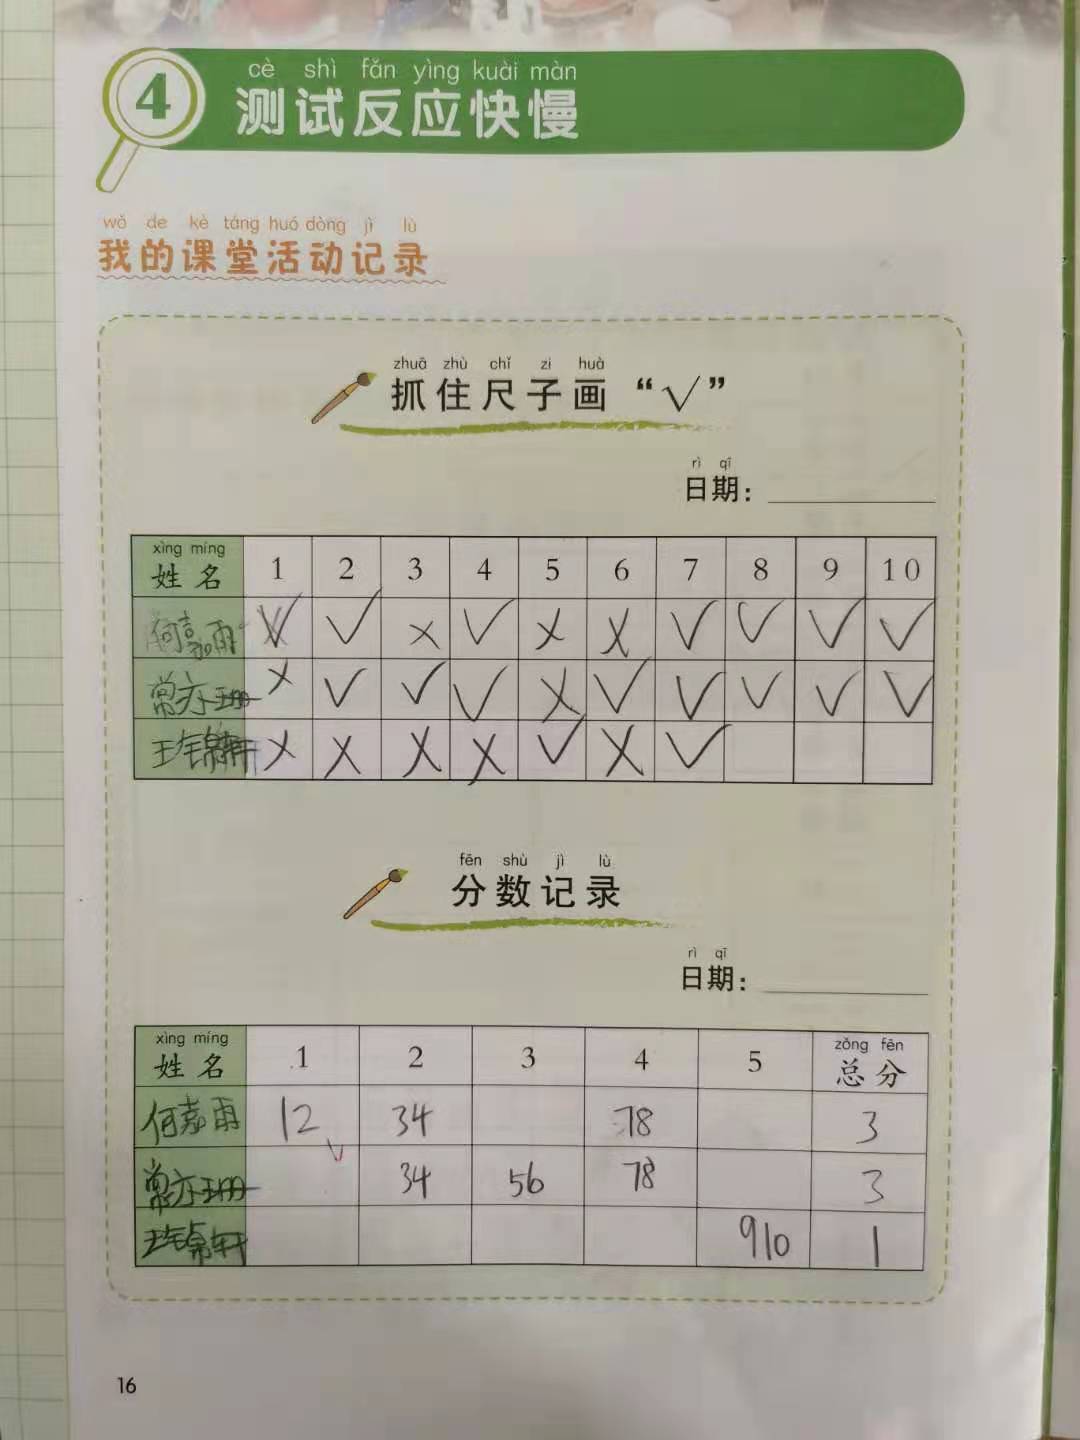 4
cè shì fǎn yìng kuài màn
测试反应快慢
wǒ de kè táng huó dòng jì lù
我的课堂活动记录
zhuā zhù chǐ zi huà
抓住尺子画“√”
rì qī
日期：
xìng míng
姓名 1 2 3 4 5 6 7 8 9 10
何嘉雨 √ √ × √ × × √ √ √ √
常亦珊 × √ √ √ × √ √ √ √ √
× × × × √ × √
fēn shù jì lù
分数记录
rì qī
日期：
xìng míng zǒng fēn
姓名 1 2 3 4 5 总分
何嘉雨 12 34 78 3
常亦珊 34 56 78 3
910 1
16